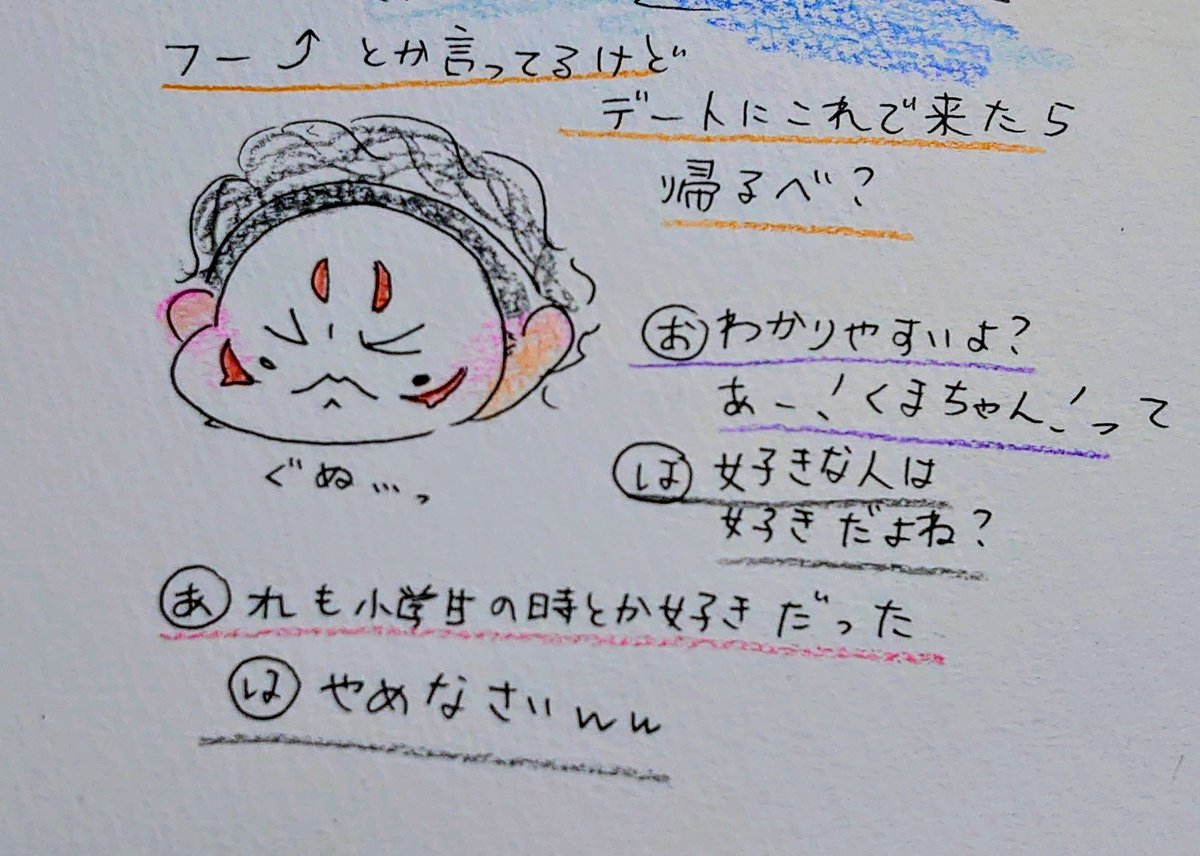 フー⤴とか言ってるけど
デートにこれで来たら
帰るべ？
おわかりやすいよ？
あー！くまちゃん！って
ほ好きな人は
好きだよね？
ぐぬ…っ
あれも小学生の時とか好きだった
ほやめなさいｗｗ